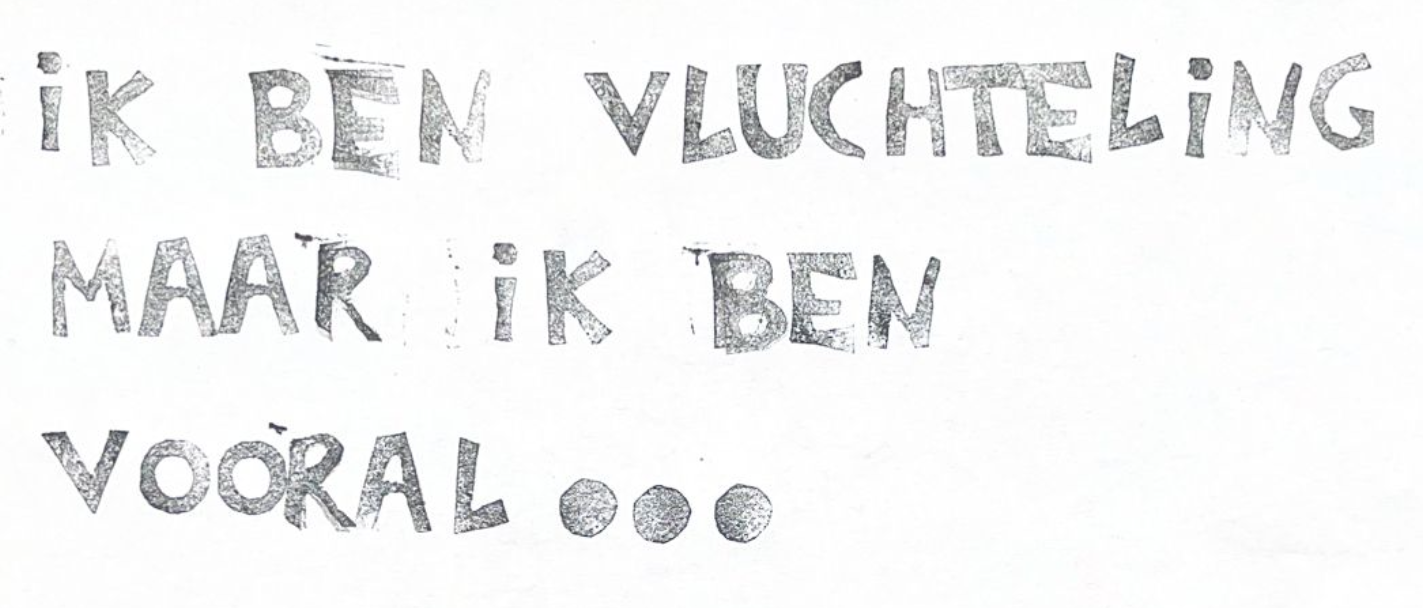 iK BEN VLUCHTELiNG
MAAR iK BEN
VOORAL...